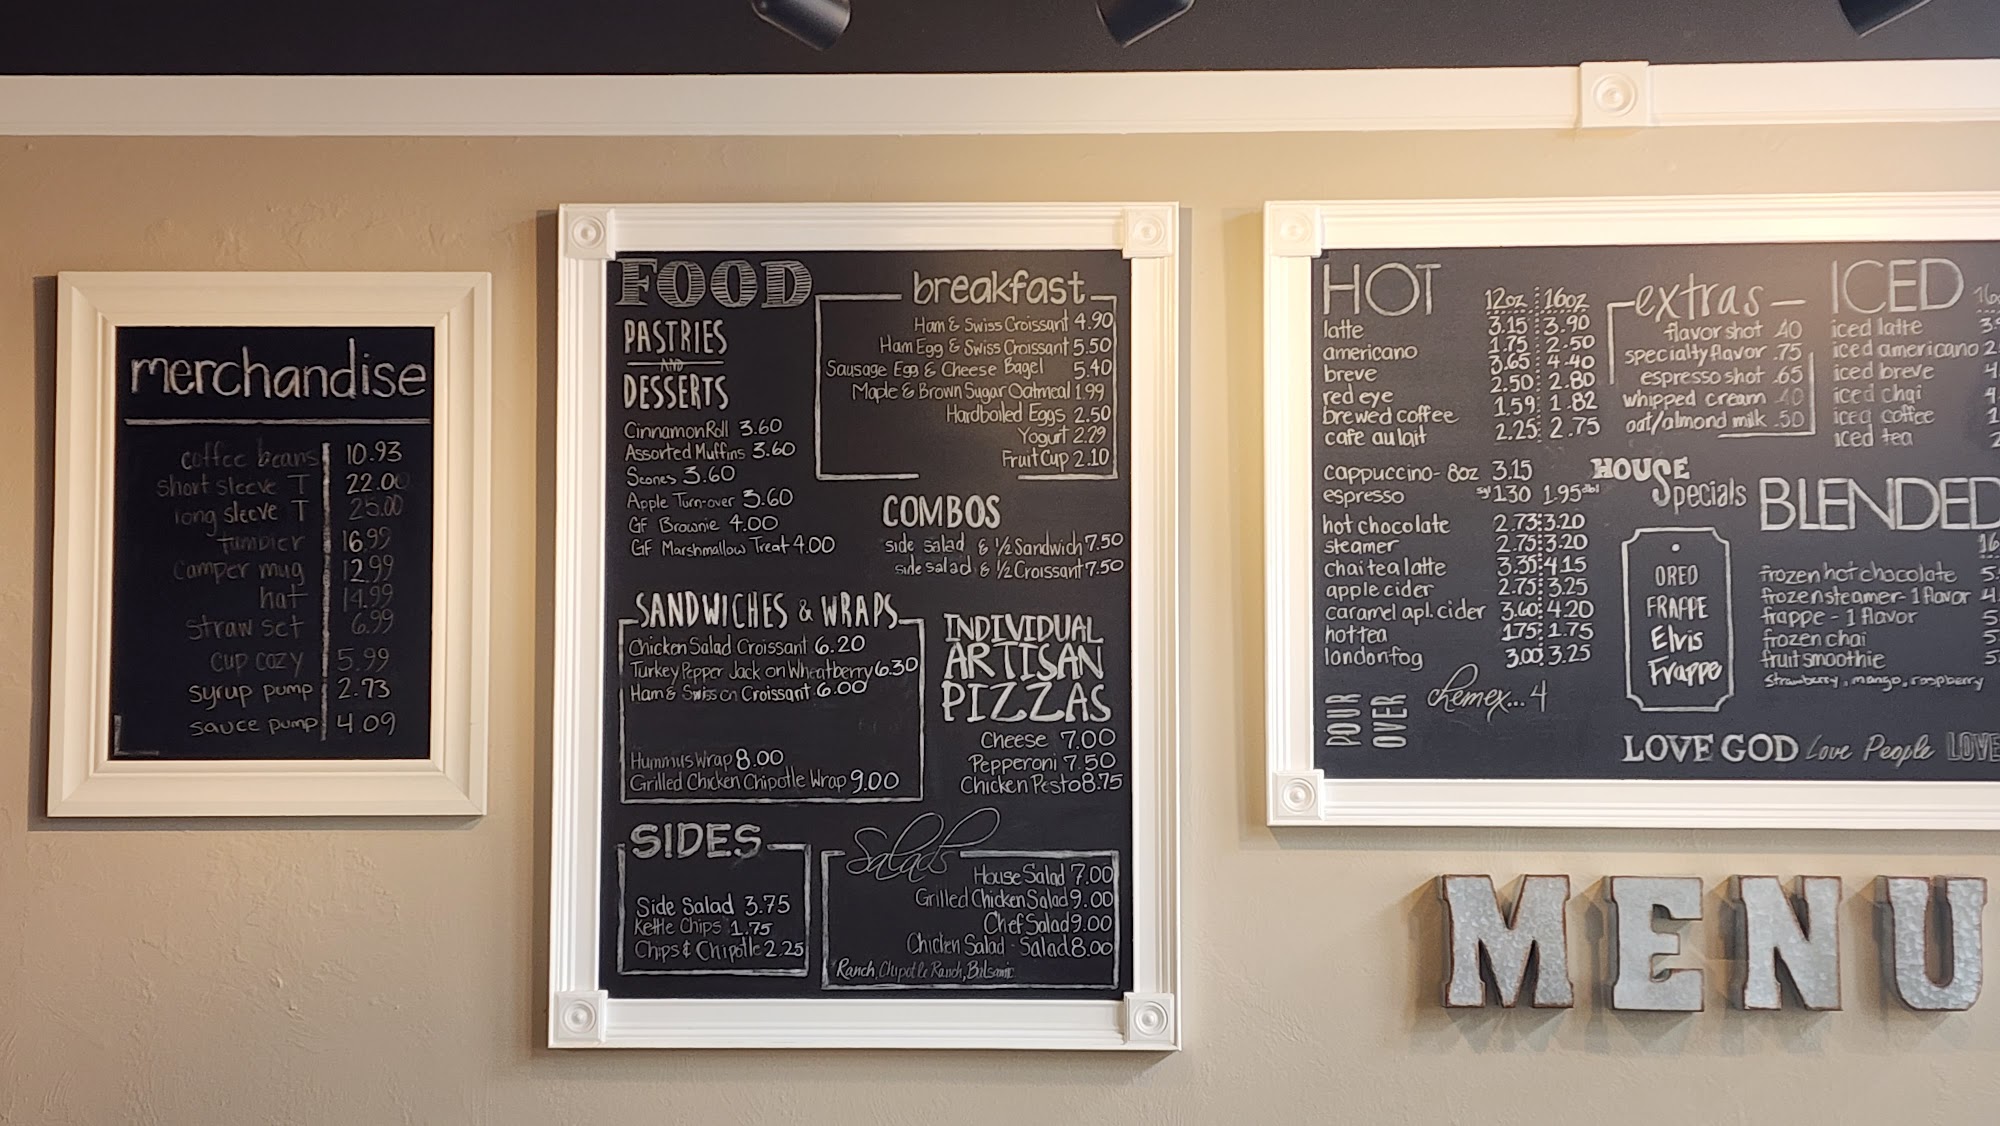 merchandise
coffee beans 10.93
short sleeve T 22.00
long sleeve T 25.00
tumbler 16.99
camper mug 12.99
hat 14.99
straw set 6.99
cup cozy 5.99
syrup pump 2.73
sauce pump 4.09
FOOD
PASTRIES
AND
DESSERTS
Cinnamon Roll 3.60
Assorted Muffins 3.60
Scones 3.60
Apple Turn-over 3.60
GF Brownie 4.00
GF Marshmallow Treat 4.00
breakfast
Ham & Swiss Croissant 4.90
Ham Egg & Swiss Croissant 5.50
Sausage Egg & Cheese Bagel 5.40
Maple & Brown Sugar Oatmeal 1.99
Hardboiled Eggs 2.50
Yogurt 2.29
Fruit Cup 2.10
COMBOS
side salad & 1/2 Sandwich 7.50
side salad & 1/2 Croissant 7.50
SANDWICHES & WRAPS
Chicken Salad Croissant 6.20
Turkey Pepper Jack on Wheatberry 6.30
Ham & Swiss on Croissant 6.00
Hummus Wrap 8.00
Grilled Chicken Chipotle Wrap 9.00
INDIVIDUAL
ARTISAN
PIZZAS
Cheese 7.00
Pepperoni 7.50
Chicken Pesto 8.75
SIDES
Side Salad 3.75
Kettle Chips 1.75
Chips & Chipotle 2.25
Salads
House Salad 7.00
Grilled Chicken Salad 9.00
Chef Salad 9.00
Chicken Salad - Salad 8.00
Ranch, Chipotle Ranch, Bilsamic
HOT 12oz 16oz
latte 3.15 3.90
americano 1.75 2.50
breve 3.65 4.40
red eye 2.50 2.80
brewed coffee 1.59 1.82
cafe au lait 2.25 2.75
cappuccino - 8oz 3.15
espresso sgl 1.30 1.95 dbl
hot chocolate 2.73 3.20
steamer 2.75 3.20
chai tea latte 3.35 4.15
apple cider 2.75 3.25
caramel apl. cider 3.60 4.20
hot tea 1.75 1.75
london fog 3.00 3.25
POUR
OVER
chemex... 4
extras
flavor shot .40
specialty flavor .75
espresso shot .65
whipped cream .40
oat/almond milk .50
HOUSE
Specials
OREO
FRAPPE
Elvis
Frappe
ICED 16
iced latte 3.
iced americano 2
iced breve 4
iced chai 4
iced coffee 1
iced tea 2
BLENDED
16
frozen hot chocolate 5
frozen steamer - 1 flavor 4
frappe - 1 flavor 5
frozen chai 5
fruit smoothie 5
strawberry, mango, raspberry
LOVE GOD Love People LOVE
MENU